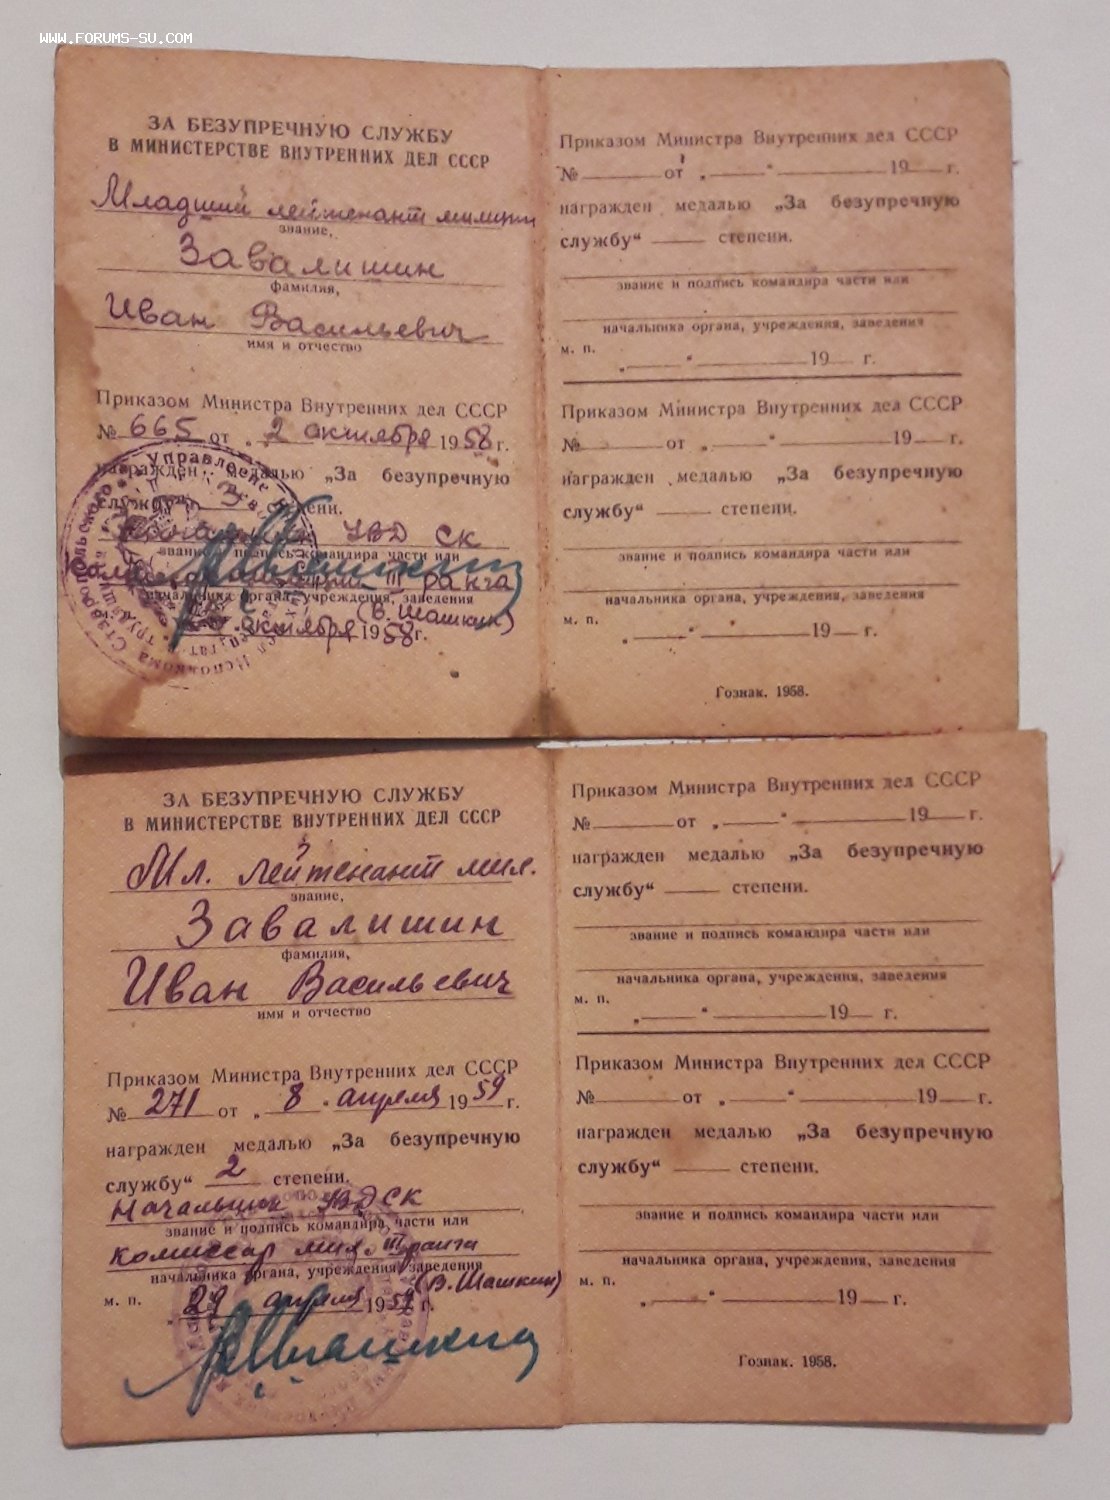 www.forums-su.com
ЗА БЕЗУПРЕЧНУЮ СЛУЖБУ
В МИНИСТЕРСТВЕ ВНУТРЕННИХ ДЕЛ СССР
Младший лейтенант милиции
звание,
Завалишин
фамилия,
Иван Васильевич
имя и отчество
Приказом Министра Внутренних дел СССР
№ 665 от „ 2 октября 1958 г.
награжден медалью „За безупречную
службу“ 3 степени.
Начальник УВД СК
звание и подпись командира части или
комиссар милиции III ранга
начальника органа, учреждения, заведения
(В. Шашкин)
октября 1958 г.
Приказом Министра Внутренних дел СССР
№ от „ “ 19 г.
награжден медалью „За безупречную
службу“ степени.
звание и подпись командира части или
начальника органа, учреждения, заведения
м. п.
„ “ 19 г.
Приказом Министра Внутренних дел СССР
№ от „ “ 19 г.
награжден медалью „За безупречную
службу“ степени.
звание и подпись командира части или
начальника органа, учреждения, заведения
м. п.
„ “ 19 г.
Гознак. 1958.
ЗА БЕЗУПРЕЧНУЮ СЛУЖБУ
В МИНИСТЕРСТВЕ ВНУТРЕННИХ ДЕЛ СССР
Мл. лейтенант мил.
звание,
Завалишин
фамилия,
Иван Васильевич
имя и отчество
Приказом Министра Внутренних дел СССР
№ 271 от „ 8 “ апреля 1959 г.
награжден медалью „За безупречную
службу“ 2 степени.
Начальник УВД СК
звание и подпись командира части или
комиссар мил. III ранга
начальника органа, учреждения, заведения
(В. Шашкин)
м. п. „ 29 апреля 1959 г.
Приказом Министра Внутренних дел СССР
№ от „ “ 19 г.
награжден медалью „За безупречную
службу“ степени.
звание и подпись командира части или
начальника органа, учреждения, заведения
м. п.
„ “ 19 г.
Приказом Министра Внутренних дел СССР
№ от „ “ 19 г.
награжден медалью „За безупречную
службу“ степени.
звание и подпись командира части или
начальника органа, учреждения, заведения
м. п.
„ “ 19 г.
Гознак. 1958.